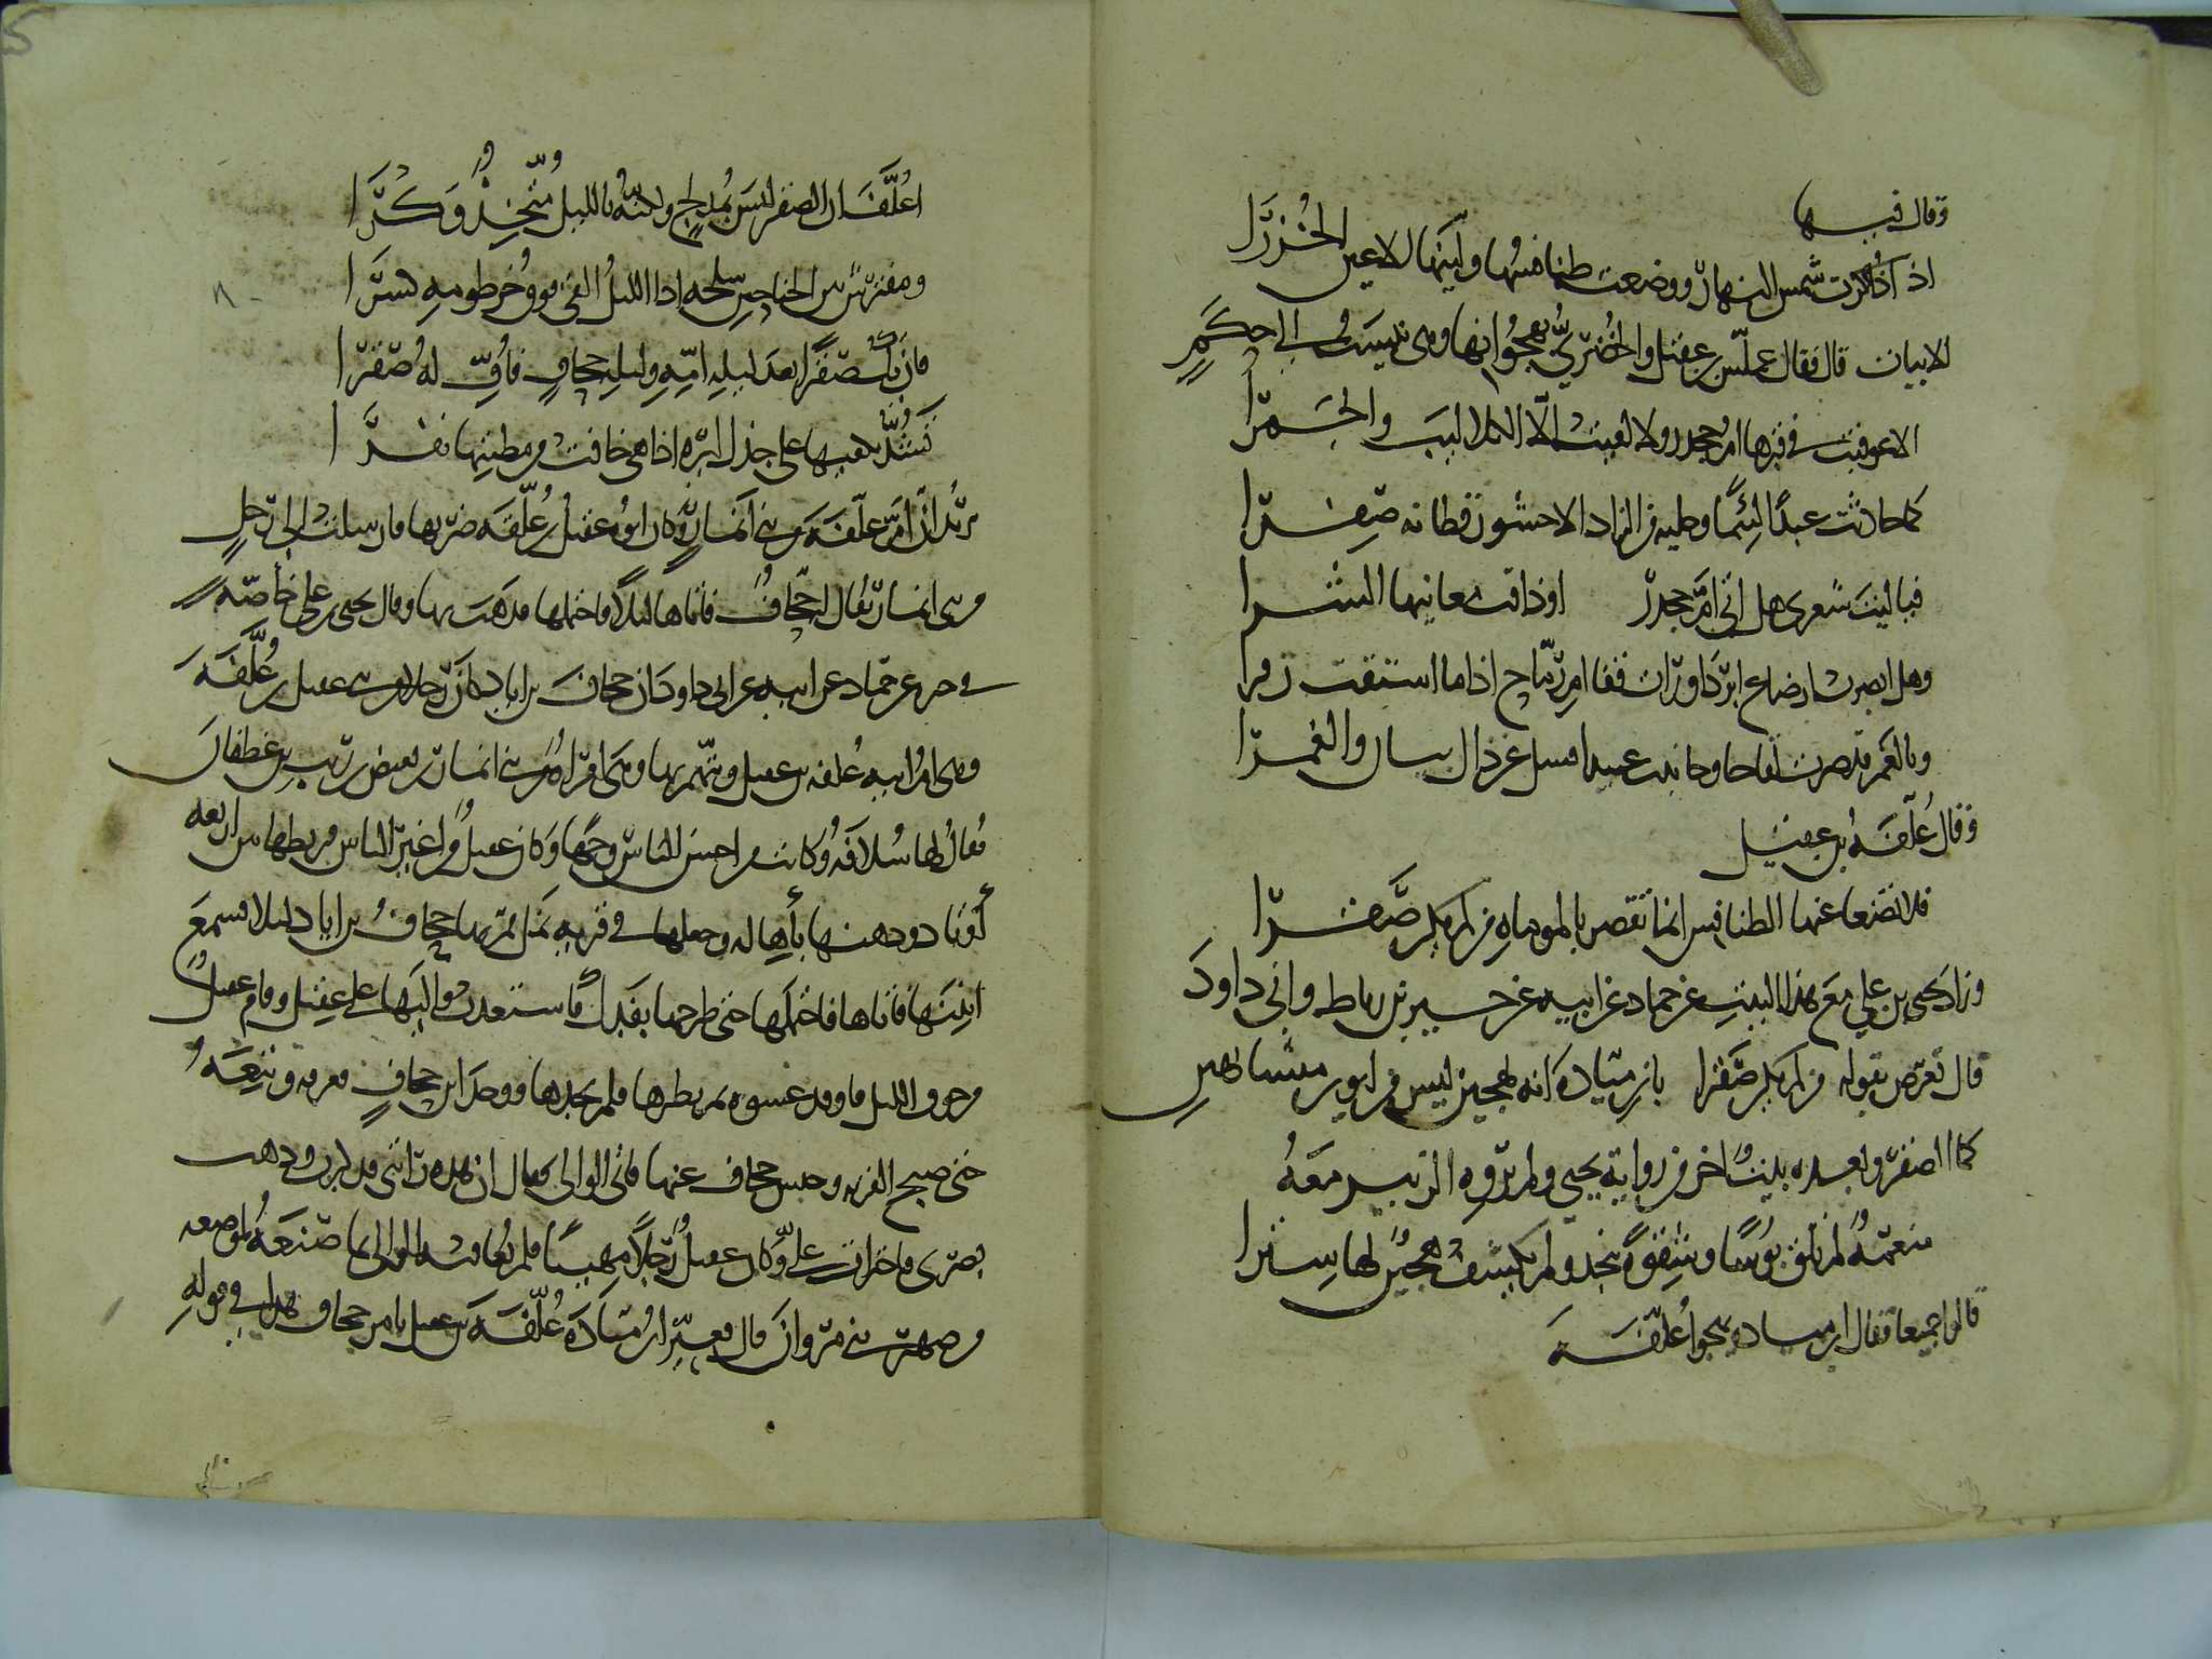 وقال فيها
اذا ذكرت شمس النهار ووضعت طنافسها ولينها الاعين الخزرا
الابيات قال فقال عملس بن عقيل والخضري يهجوانها وهي تنسب الى ابي حكم
الا عوفيت في قبرها ام جحدر ولا لقيت الا الكلاليب والجمرا
كما حادثت عبدا لئيما وخلته من الزاد الا حشو ريطاته صفرا
فيا ليت شعري هل اتى ام جحدر او ذاقت معانيها الشبرا
وهل ابصرت ارساغ ابرد او رات قفا ام رماح اذا ما استقت دفرا
وبالغمر قد صرت لقاحا وحادثت عبيدا فسل عن ذاك نيان والغمرا
وقال علفة بن عقيل
فلا تضعا عنها الطنافس انما تقصر بالموماة من لم يكن صقرا
وزاد يحيى بن علي مع هذا البيت عن حماد عن ابيه عن جرير بن رباط وابي داود
قال تعرض بقوله من لم يكن صقرا بابن ميادة انه هجين ليس من ابوين متشابهين
كما الصقر وبعده بيت اخر من رواية يحيى ولم يروه الزبير معه
منعمة لم تلق بؤسا وشقوة بنجد ولم يكشف هجين لها سترا
قالوا جميعا فقال ابن ميادة يهجوا علفة
اعلف ان الصقر ليس بمدلج ولكنه بالليل متخذ وكرا
ومفترش بين الجناحين سلحه اذا الليل القى فوق خرطومه كسرا
فان يك صقرا بعد ليلة امه وليلة جحاف فاف له صقرا
تشد بكفيها على جذل ايره اذا هي خافت من مطيتها نفرا
يريد ان ام علفة من بني انمار وكان ابوه عقيل بن علفة ضربها فارسلت الى رجل
من بني انمار يقال له جحاف فاتاها ليلا فاحتملها فذهبت بها وقال يحيى بن علي خاصة
في خبره عن حماد عن ابيه عن ابي داود ان جحاف بن اياد كان رجلا من بني عقيل بن علفة
وهي امراة علفة بن عقيل ويتهم بها وهي امراة من بني انمار بن بغيض بن ريث بن غطفان
يقال لها سلافة وكانت من احسن الناس وجها وكان عقيل من اغير الناس فربطها بين اربعة
اوتاد ودهنها باهالة وجعلها في قرية نمل فمر بها جحاف بن اياد ليلا فسمع
انينها فاتاها فاحتملها حتى طرحها بفدك فاستعدت واليها على عقيل وقام عقيل
من جوف الليل فاوقد عشوة ونظرها فلم يجدها ووجد اثر جحاف فعرفه وتبعه
حتى صبح القرية وحبس جحاف عنها فاتى الوالي فقال ان هذه راتني قد كبرت وذهب
بصري فاجترات علي وكان عقيل رجلا مهيبا فلم يعاقبه الوالي بما صنعه لموضعه
من صهر بني مروان قال فعير ابن ميادة علفة بن عقيل بامر جحاف هذا في قوله